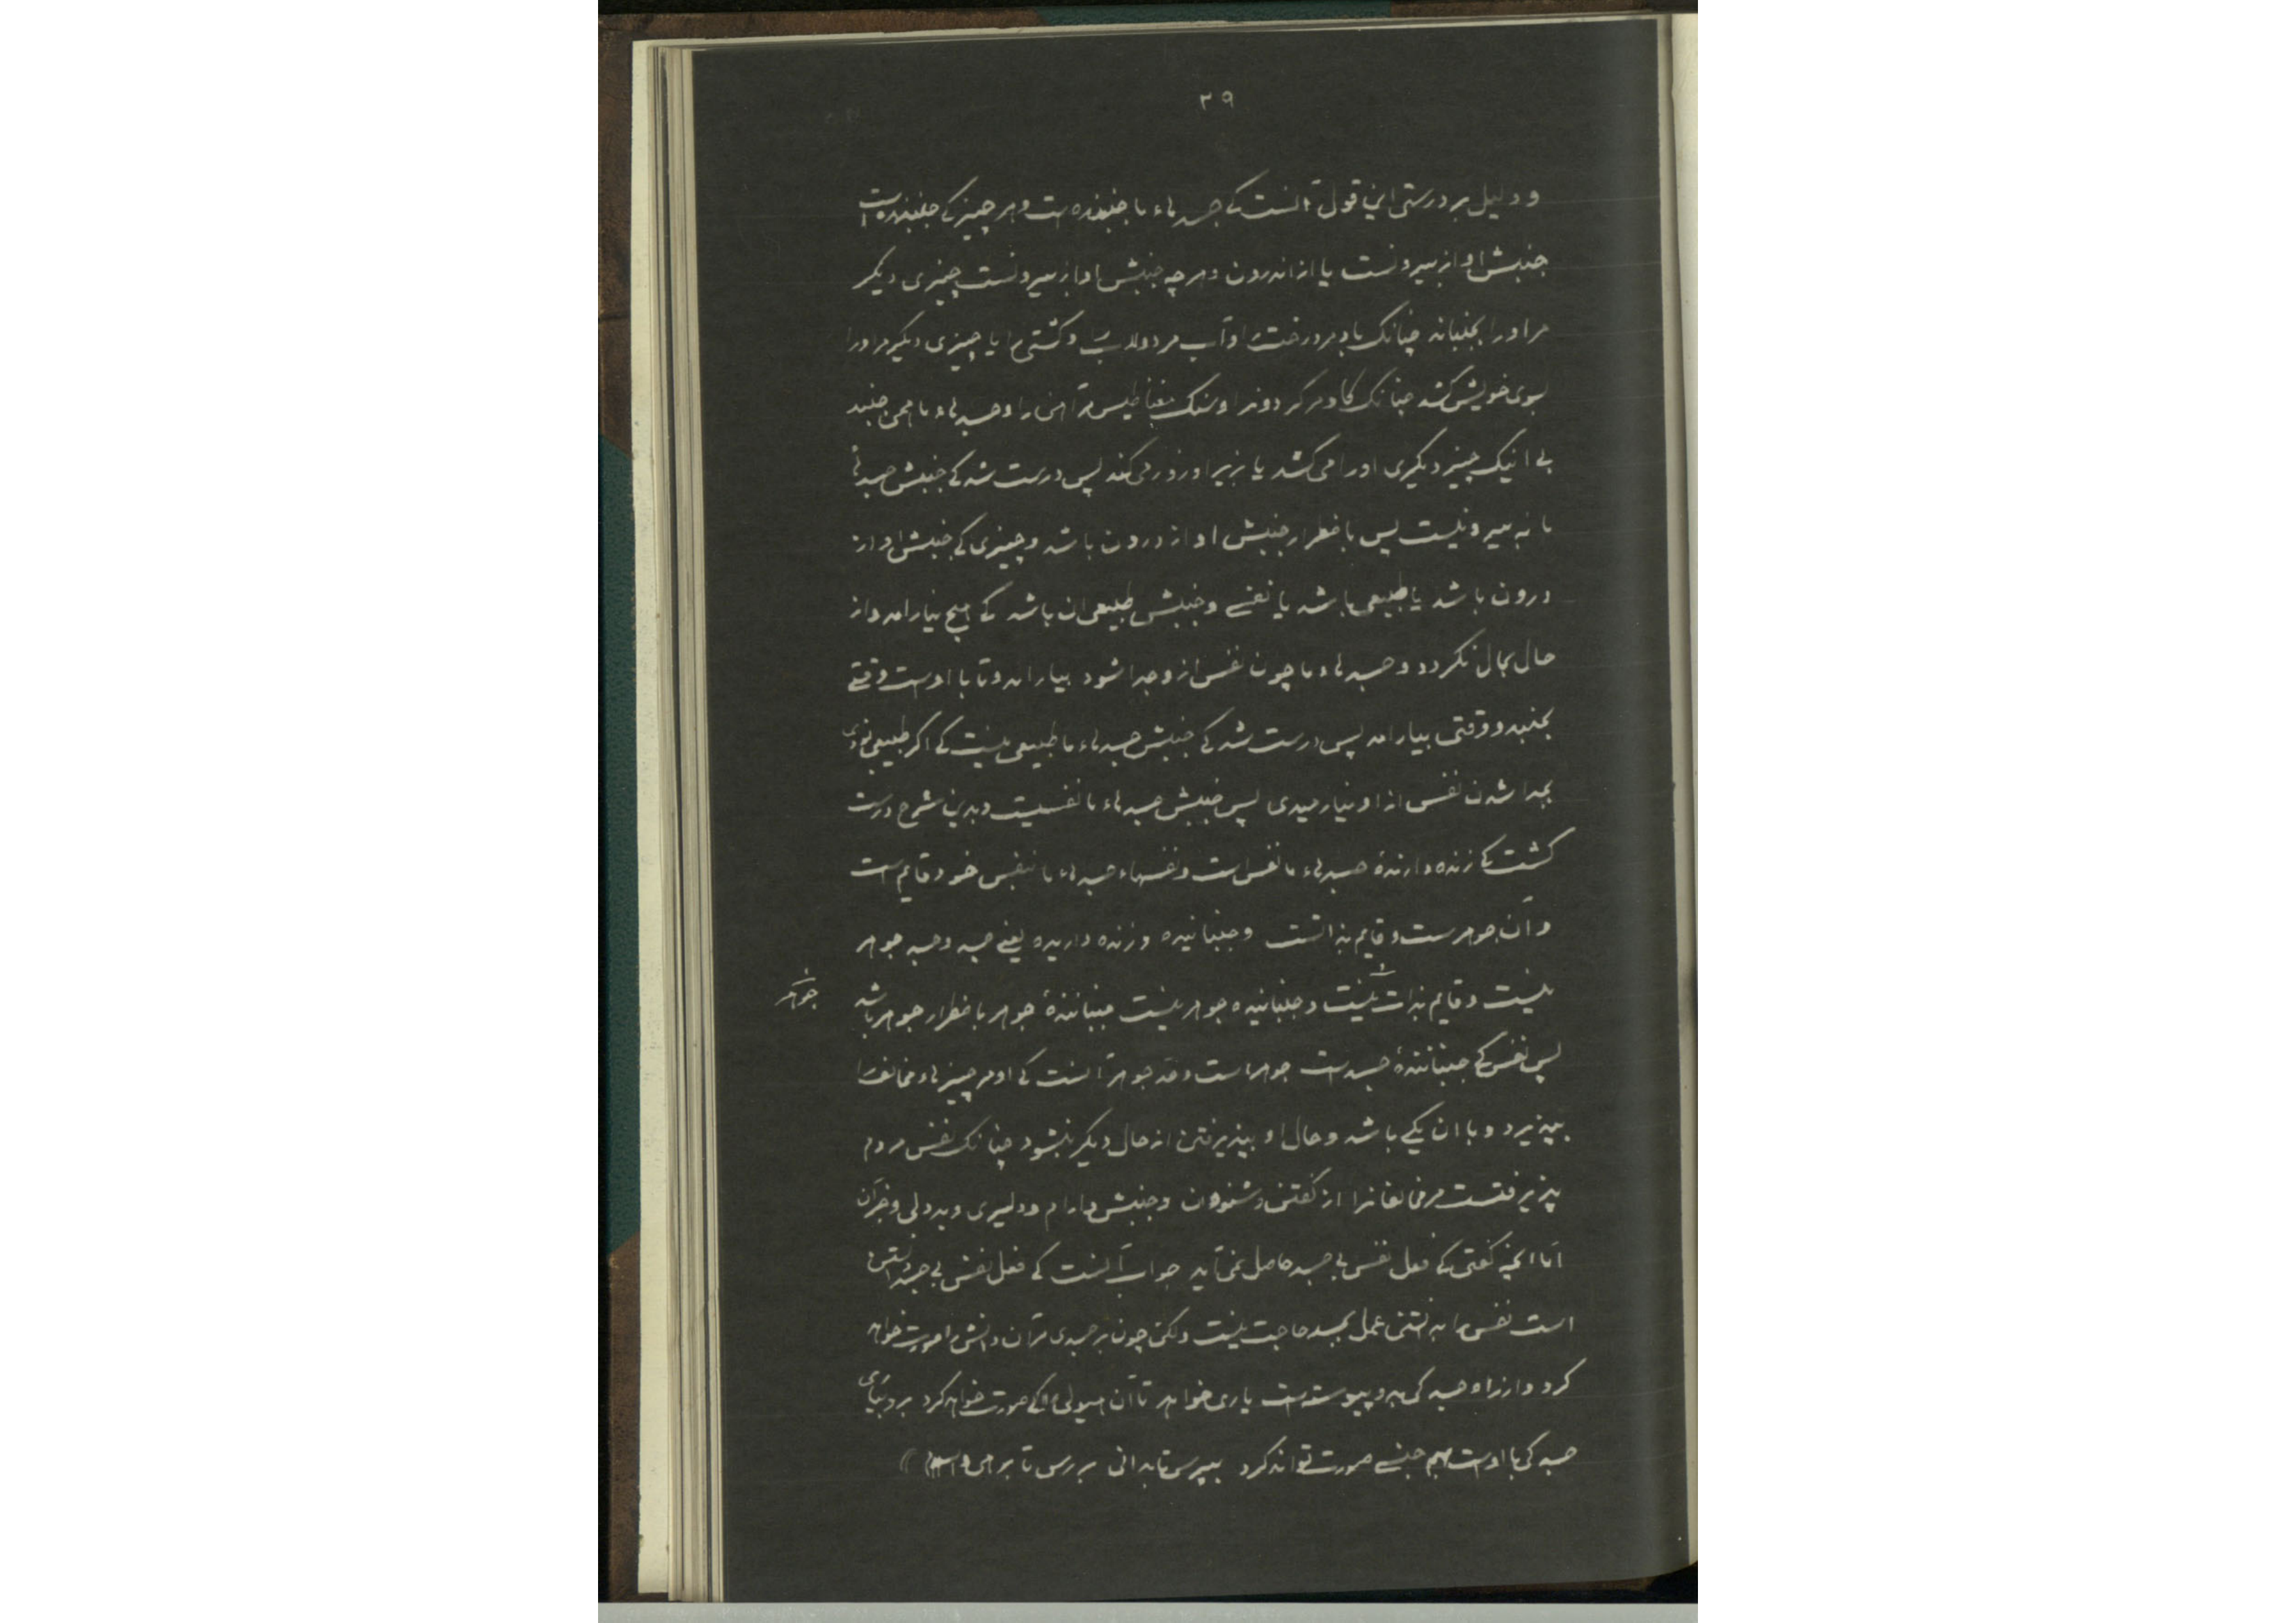 ۳۹
و دلیل بر درستی این قول آنست کے جسدهاء ما جنبنده است و هر چیز کے جنبنده است
جنبش او از بیرونست یا از اندرون و هرچه جنبش او از بیرونست چیزی دیکر
مر اورا بجنباند چنانک باد مر درخت را و آب مر دولاب و کشتی را یا چیزی دیکر مر اورا
بسوی خویش کشد چنانک کاو مر کردونرا و سنک مغناطیس مر آهن را و جسدهاء ما همی جنبد
بے انیک چیز دیکری اورا می کشد یا بزیر او زور می کند پس درست شد کے جنبش جسدهاء
ما نه بیرونیست پس باضطرار جنبش او از درون باشد و چیزی کے جنبش او از
درون باشد یا طبیعی باشد یا نفسے و جنبش طبیعی ان باشد کے هیچ نیارامد و از
حال بحال نکردد و جسدهاء ما چون نفس ازو جدا شود بیارامد و تا با اوست وقتے
بجنبد و وقتی بیارامد پس درست شد کے جنبش جسدهاء ما طبیعی نیست کے اکر طبیعی بودی
بجدا شدن نفس از او نیارمیدی پس جنبش جسدهاء ما نفسیست و بدین شرح درست
کشت کے زنده دارندهٔ جسدهاء ما نفس است و نفسهاء جسدهاء ما بنفس خود قایم است
و آن جوهرست و قایم بذاتست و جنبانیده و زنده داریده یعنے جسد و جسد جوهر
نیست و قایم بذات نیست و جنبانیده جوهر نیست جنبانندهٔ جوهر باضطرار جوهر باشد
جوهر
پس نفس کے جنبانندهٔ جسدست جوهر است و حد جوهر آنست کے او مر چیزهاء مخالف را
بپذیرد و با ان یکے باشد و حال او بپذیرفتن از حال دیکر نشود چنانک نفس مردم
پذیرفتست مر مخالفانرا از کفتن و شنودن و جنبش و ارام و دلیری و بددلی و جز آن
اما انچه کفتی کے فعل نفس بے جسد حاصل نمی آید جواب آنست کے فعل نفس بے جسد دانستن
است نفس را بدانستن عمل بجسد حاجت نیست و لکن چون بر جسدی مر آن دانش را صورت خواهد
کرد و ارزاه جسد کی بدو پیوسته است یاری خواهد تا آن هیولی را کے صورت خواهد کرد بر و بیای
جسد کی با اوست هم جنسے صورت تواند کرد بپرس تا بدانی بررس تا برهی والسلام